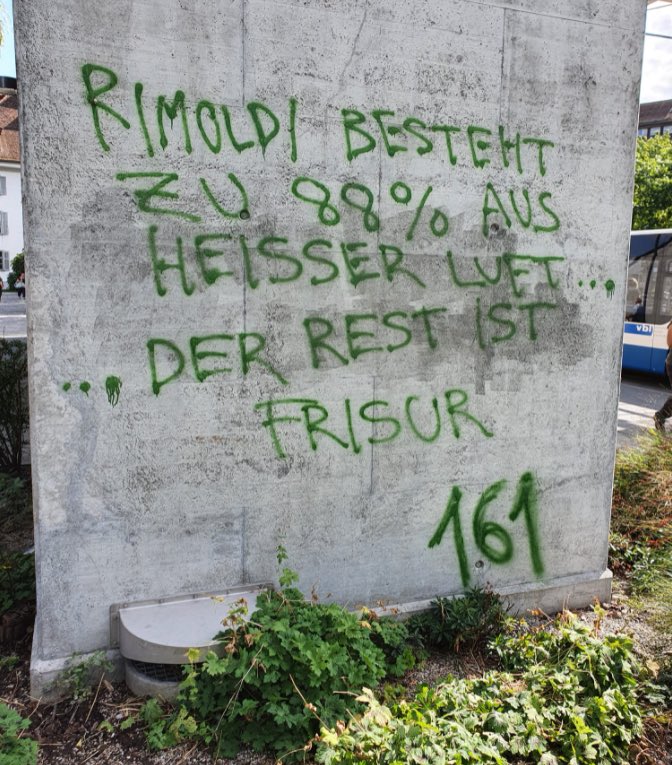 RIMOLDI BESTEHT
ZU 88% AUS
HEISSER LUFT...
...DER REST IST
FRISUR
161
vbl